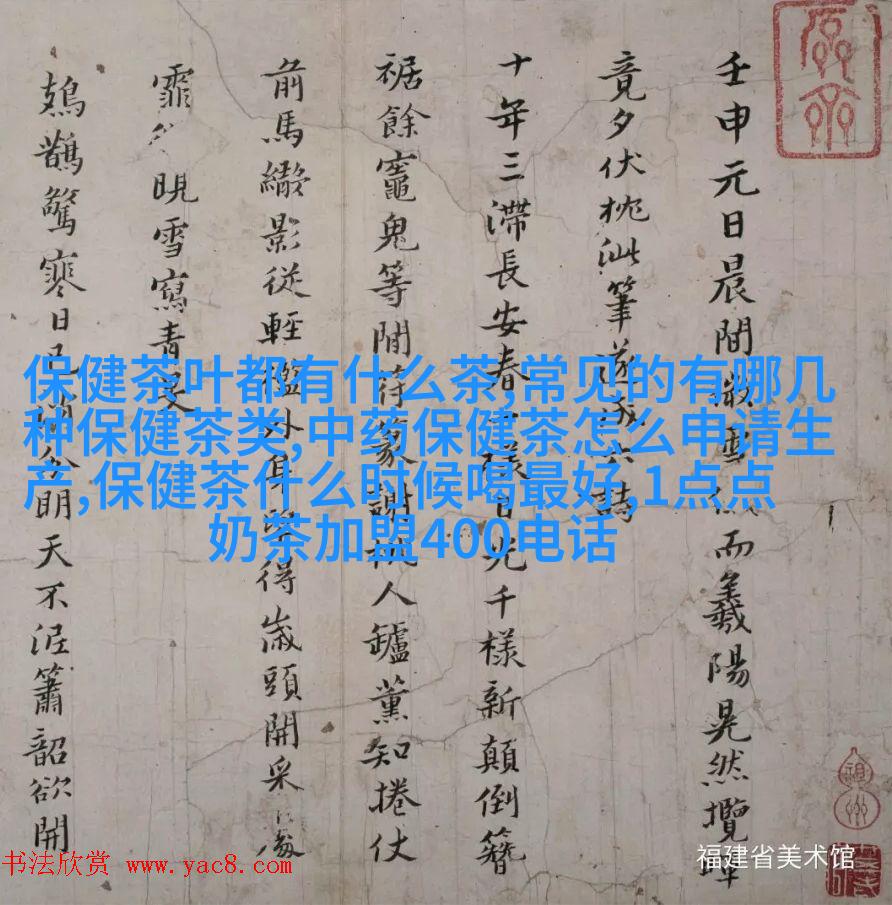 壬申元日晨間微雪而羲陽晃然攬
竟夕伏枕泚筆遂成六詩
十年三滯長安春樣日光千樣新顛倒簪
裾餘鬼等閒符篆謝桃人鑪薰知捲仗
前馬影從輕外身得歲頭開采
霏晛雪寫青旻
鳷鵲驚寒日分明天不淫簫韶欲開
保健茶叶都有什么茶,常见的有哪几
种保健茶类,中药保健茶怎么申请生
产,保健茶什么时候喝最好,1点点
奶茶加盟400电话
书法欣赏 www.yac8.com
福建省美术馆